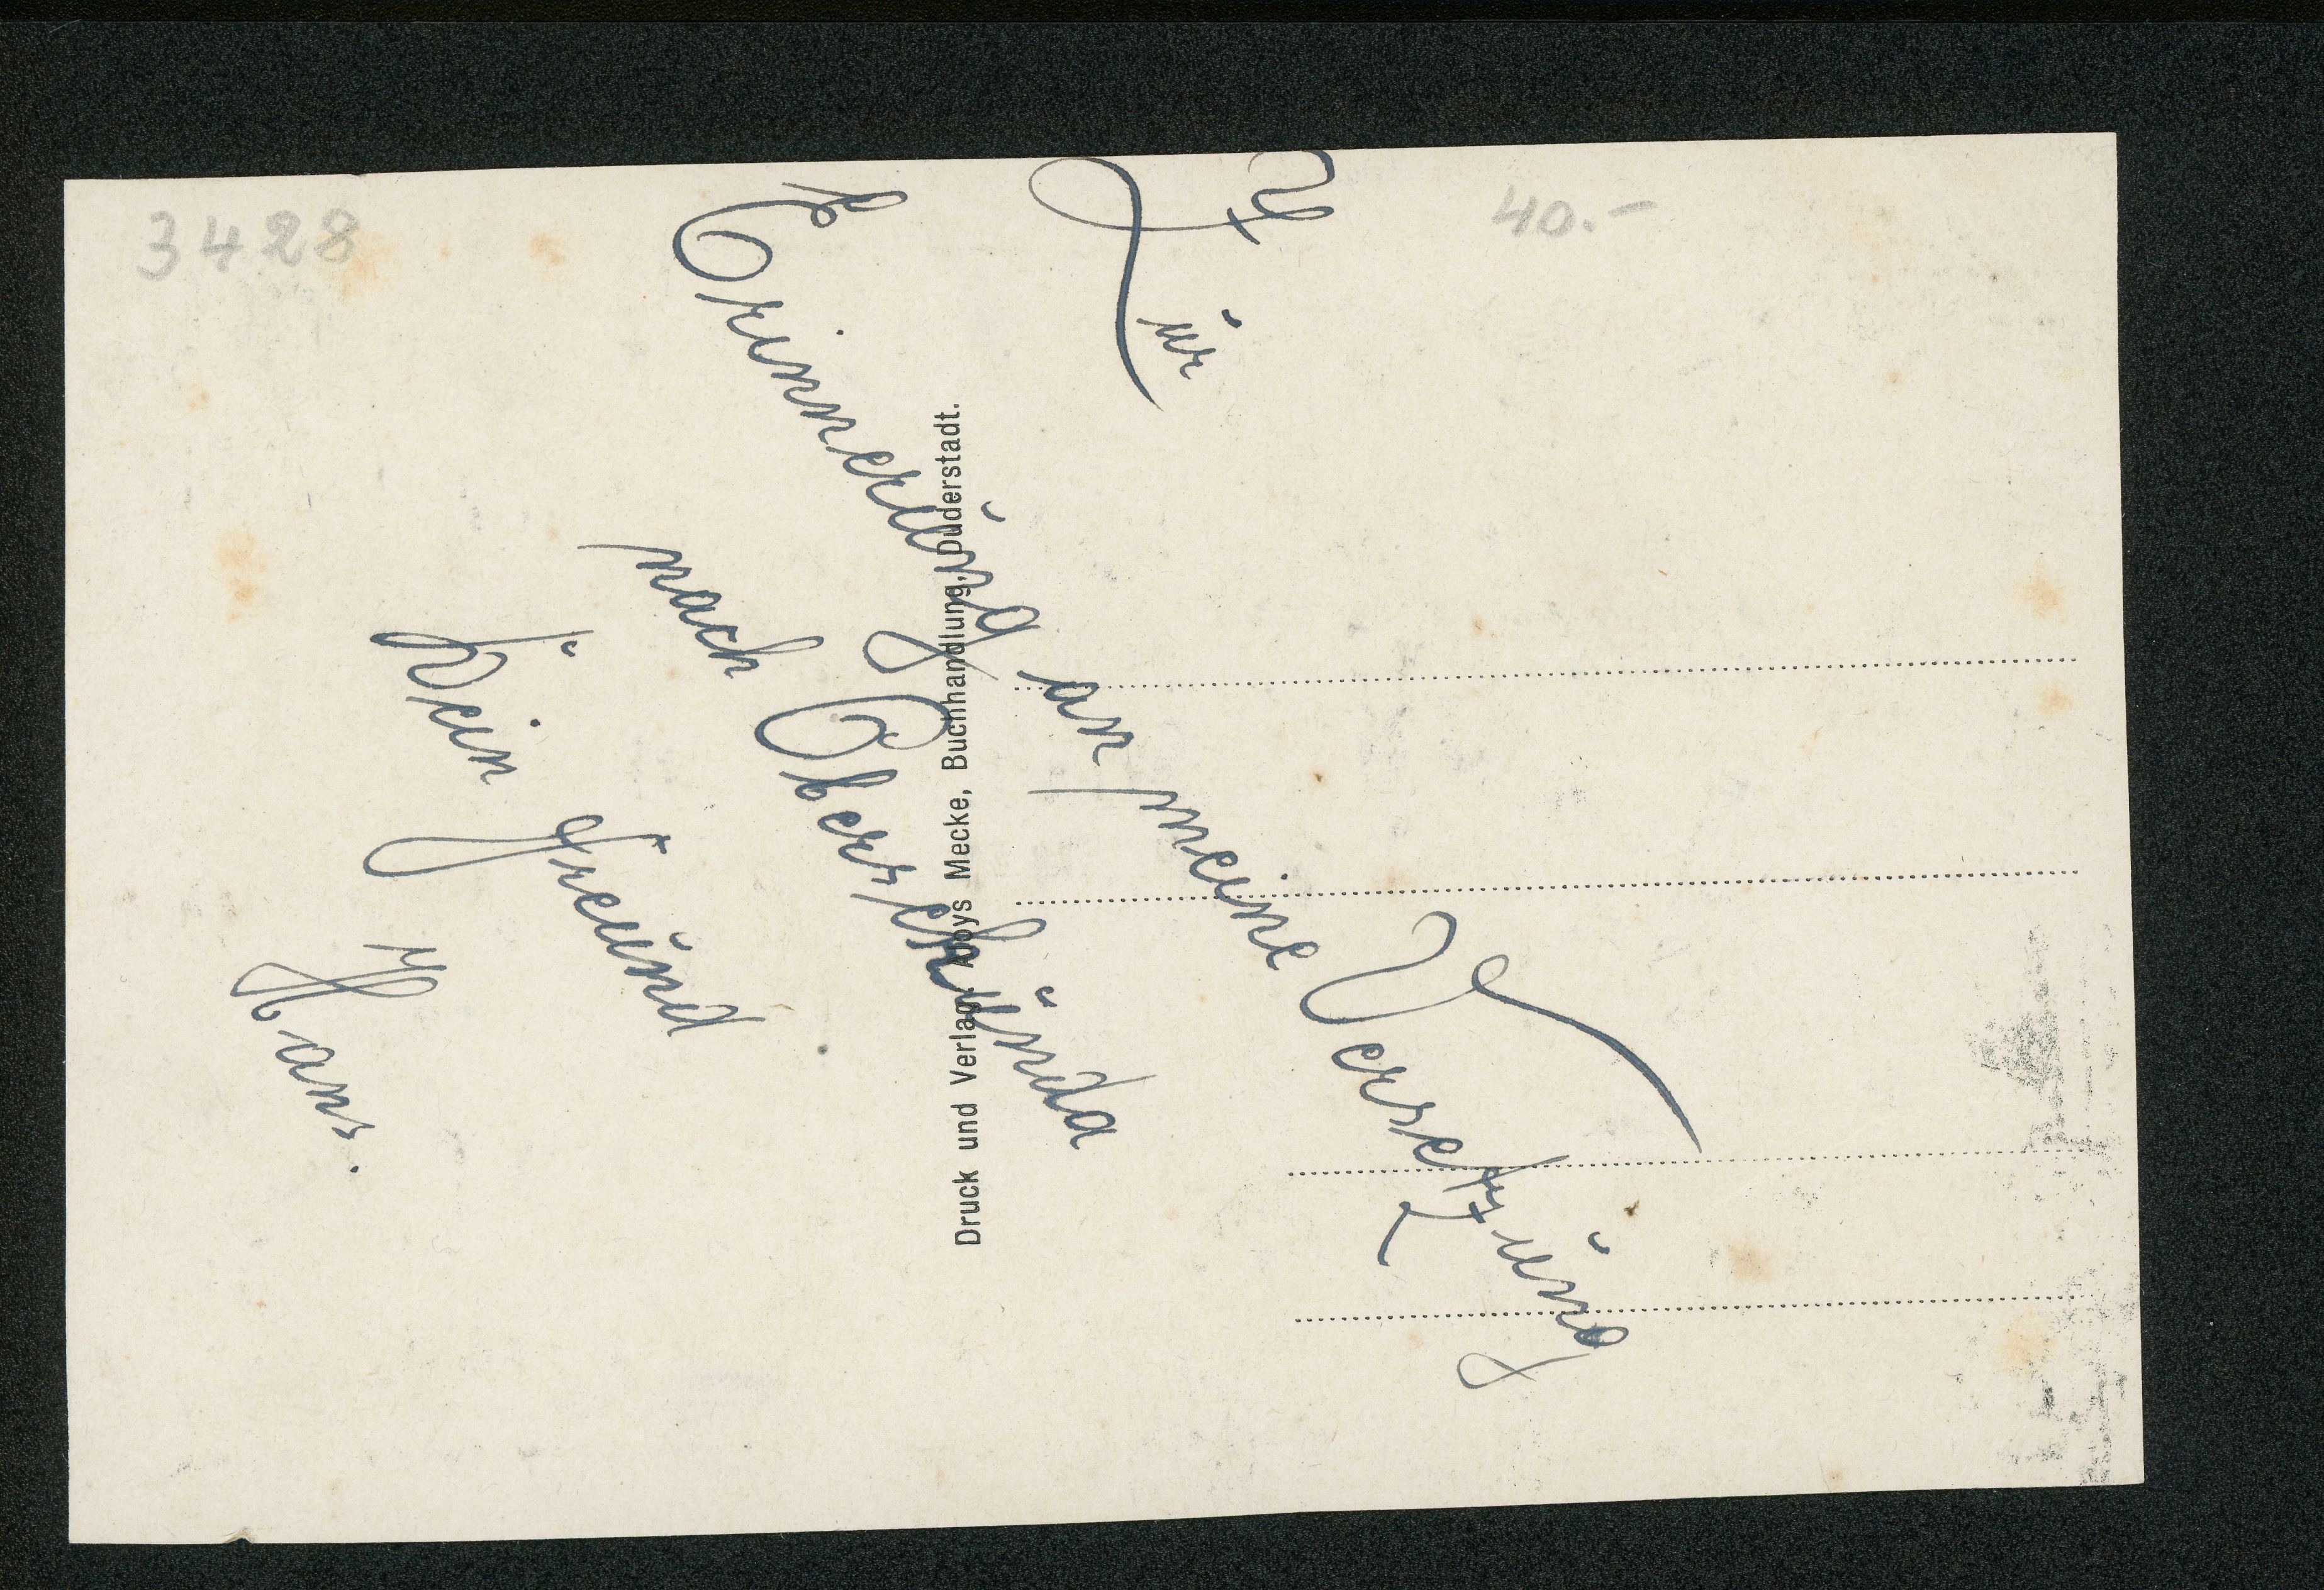 3428
40.-
Zur
Erinnerung an meine Versetzung
nach Obersekunda
Dein Freund
Hans.
Druck und Verlag: Aloys Mecke, Buchhandlung, Duderstadt.